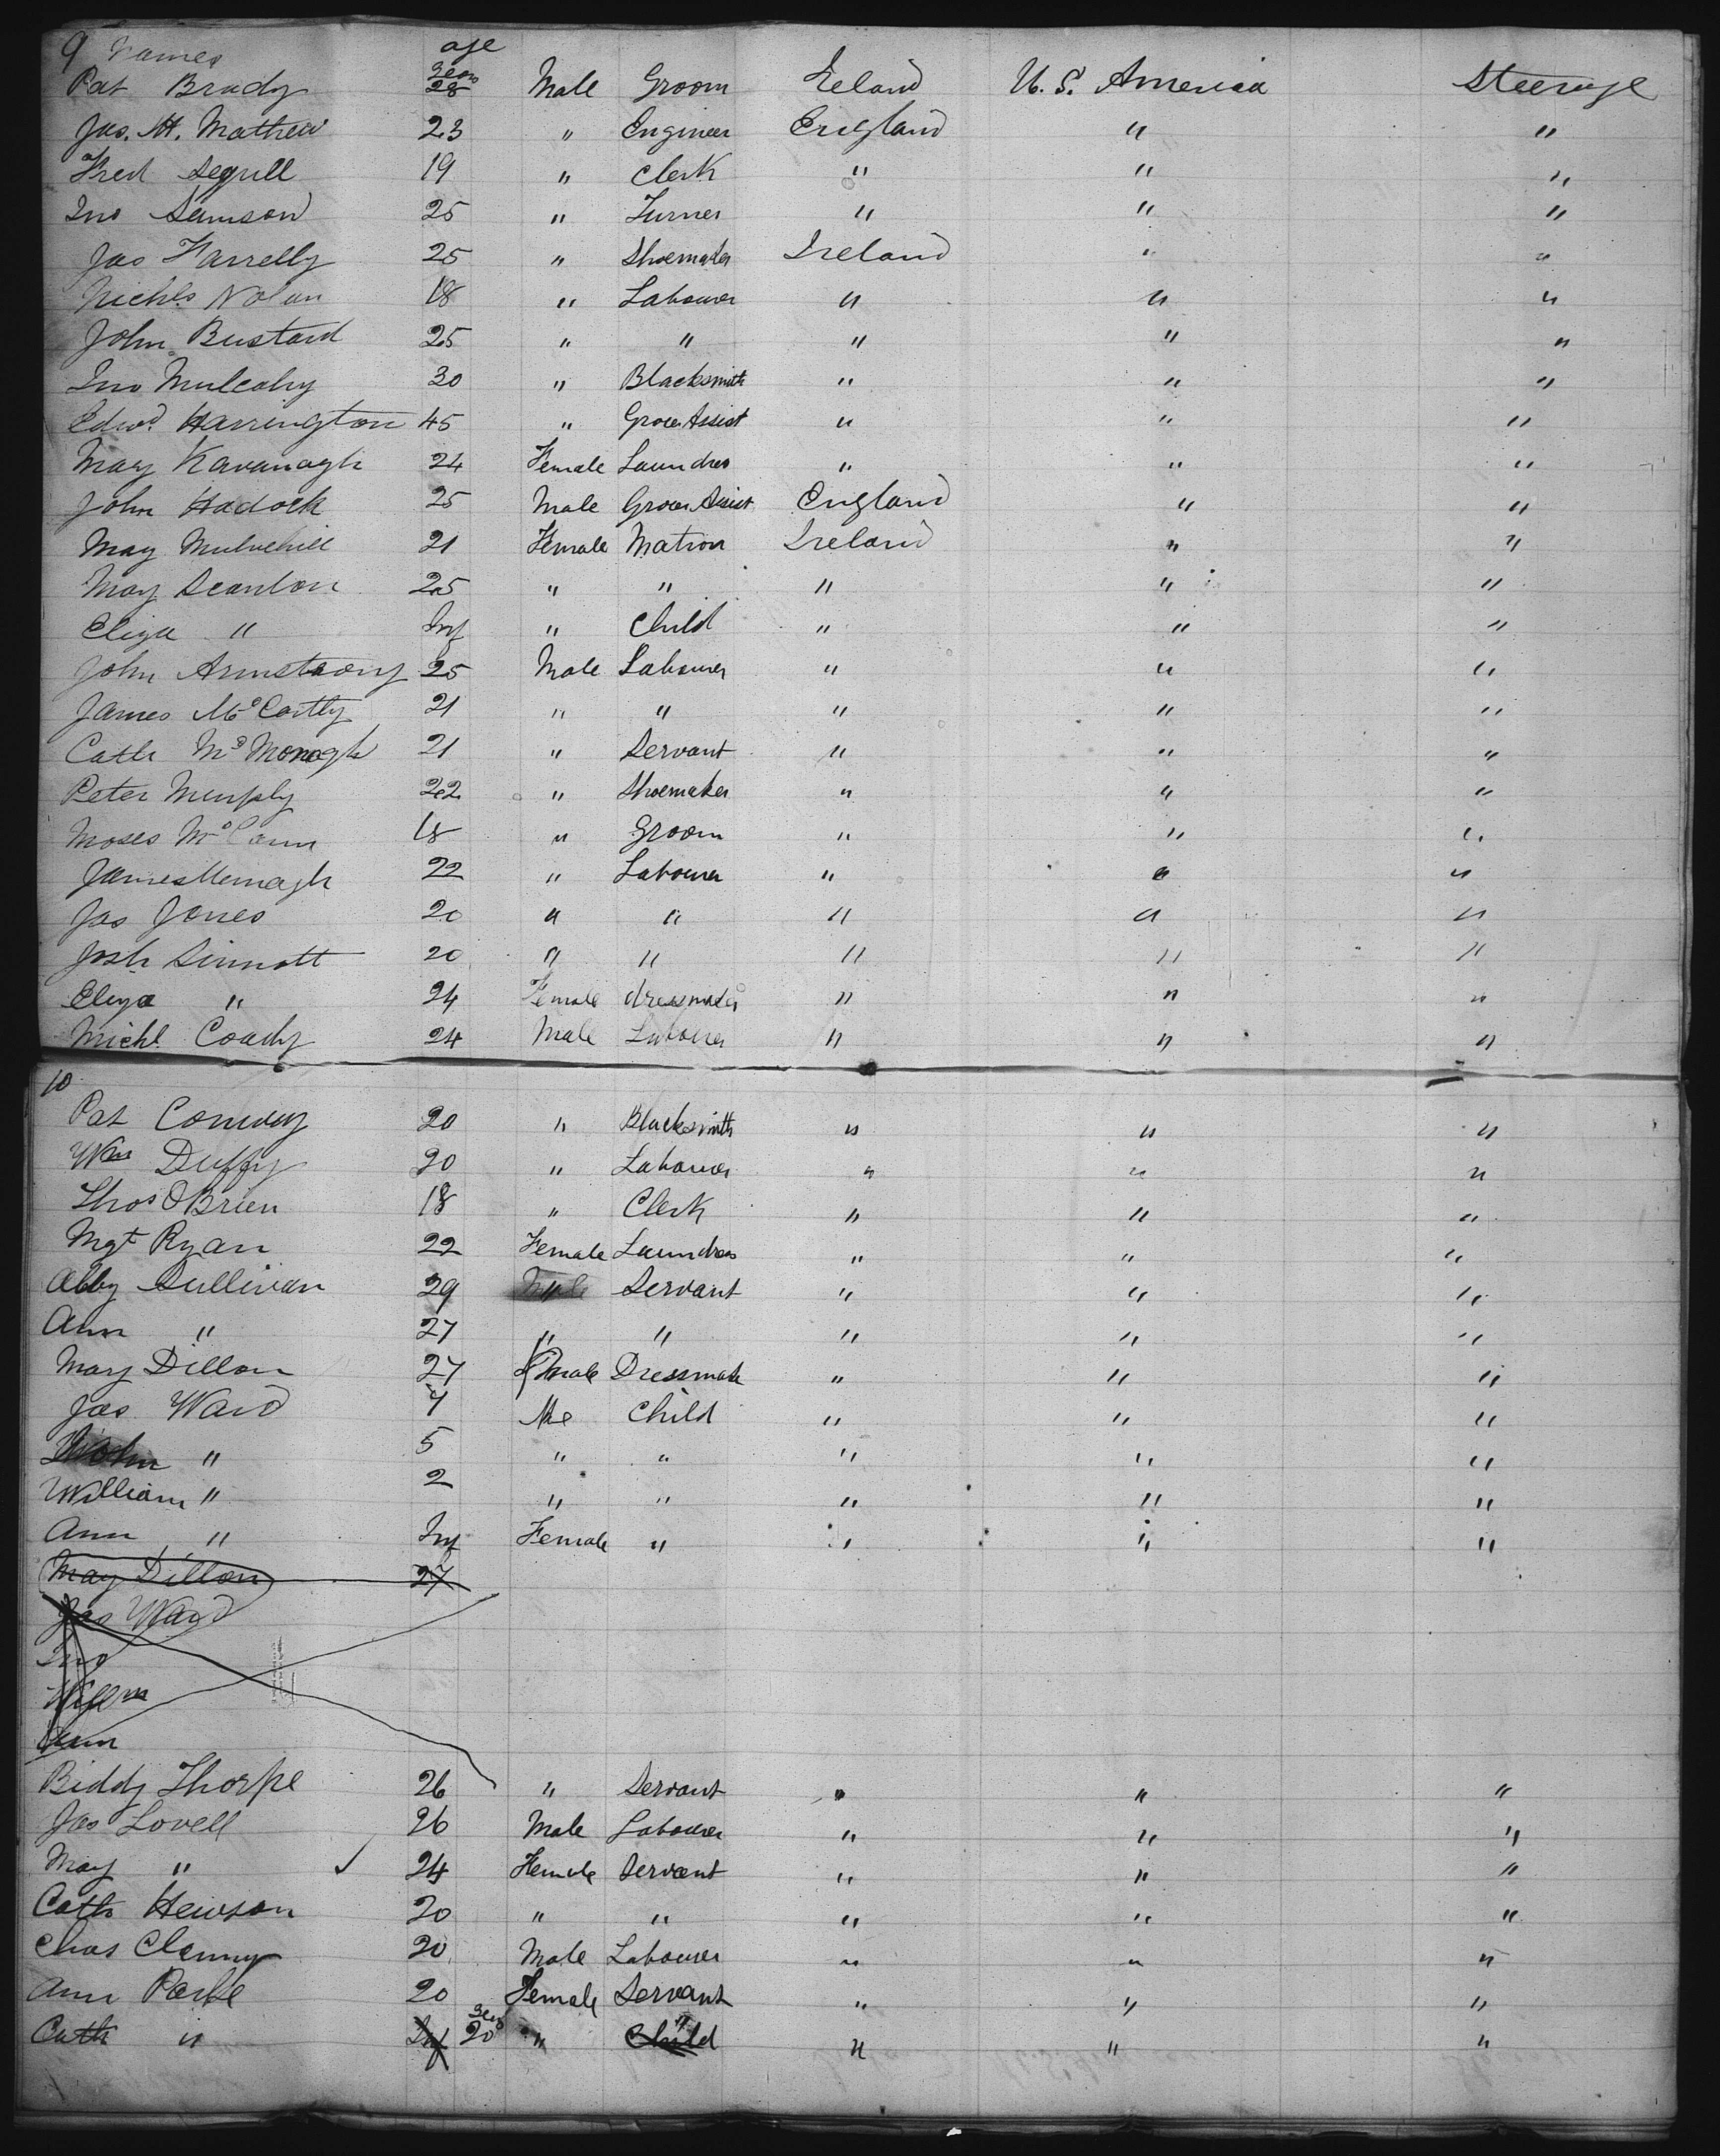 9 Names age
Pat Brady Years 28 Male Groom Ireland U. S. America Steerage
Jas. H. Mathew 23 " Engineer England " "
Fred Segrell 19 " Clerk " " "
Jno Samson 25 " Turner " " "
Jas Farrelly 25 " Shoemaker Ireland " "
Nichls Nolan 18 " Labourer " " "
John Bustard 25 " " " " "
Jno Mulcahy 30 " Blacksmith " " "
Edwd Harrington 45 " Grocer Assist " " "
Mary Kavanagh 24 Female Laundres " " "
John Hadock 25 Male Grocer Assist England " "
May Mulvehill 21 Female Matron Ireland " "
May Scanlon 25 " " " " "
Eliza " Inf " Child " " "
John Armstrong 25 Male Labourer " " "
James McCartly 21 " " " " "
Cath McMonagh 21 " Servant " " "
Peter Murphy 22 " Shoemaker " " "
Moses McCann 18 " Groom " " "
James Mernagh 22 " Labourer " " "
Jas Jones 20 " " " " "
Josh Sinnott 20 " " " " "
Eliza " 24 Female dressmaker " " "
Michl Coady 24 Male Labourer " " "
10
Pat Conway 20 " Blacksmith " " "
Wm Duffy 20 " Labourer " " "
Thos OBrien 18 " Clerk " " "
Mgt Ryan 22 Female Laundres " " "
Abby Sullivan 29 " Servant " " "
Ann " 27 " " " " "
Mary Dillon 27 Female Dressmak " " "
Jas Ward 7 Me Child " " "
John " 5 " " " " "
William " 2 " " " " "
Ann " Inf Female " " " "
May Dillon 27
Jas Ward
Jno
Willm
Ann
Biddy Thorpe 26 " Servant " " "
Jas Lovell 26 Male Labourer " " "
May " ✓ 24 Female Servant " " "
Cath Hewson 20 " " " " "
Chas Clanny 20 Male Labourer " " "
Ann Parke 20 Female Servant " " "
Cath " Inf 20 " Child " " " "